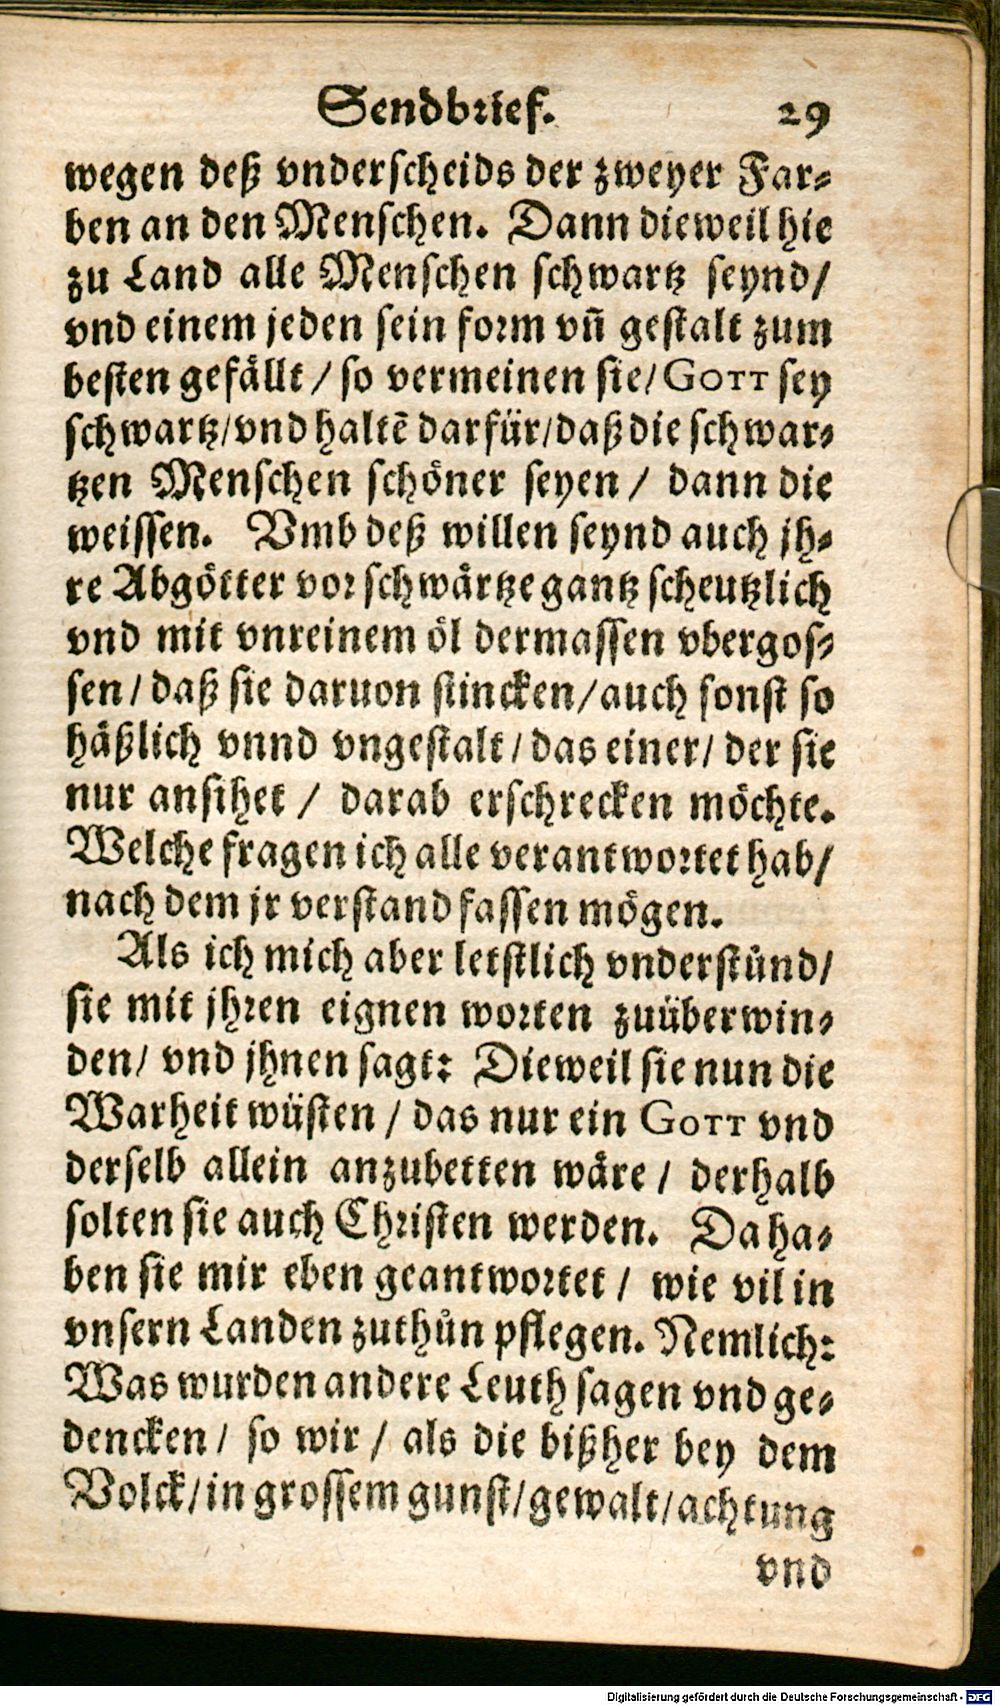 Sendbrief. 29
wegen deß vnderscheids der zweyer Far⸗
ben an den Menschen. Dann dieweil hie
zu Land alle Menschen schwartz seynd/
vnd einem jeden sein form vn̄ gestalt zum
besten gefällt / so vermeinen sie/ GOTT sey
schwartz/vnd haltē darfür/daß die schwar⸗
tzen Menschen schöner seyen / dann die
weissen. Vmb deß willen seynd auch jh⸗
re Abgötter vor schwärtze gantz scheutzlich
vnd mit vnreinem öl dermassen vbergos⸗
sen / daß sie daruon stincken/auch sonst so
häßlich vnnd vngestalt / das einer/ der sie
nur ansihet / darab erschrecken möchte.
Welche fragen ich alle verantwortet hab/
nach dem jr verstand fassen mögen.
Als ich mich aber letstlich vnderstünd/
sie mit jhren eignen worten zuüberwin⸗
den/ vnd jhnen sagt: Dieweil sie nun die
Warheit wüsten / das nur ein GOTT vnd
derselb allein anzubetten wäre / derhalb
solten sie auch Christen werden. Da ha⸗
ben sie mir eben geantwortet / wie vil in
vnsern Landen zuthůn pflegen. Nemlich:
Was wurden andere Leuth sagen vnd ge⸗
dencken / so wir / als die bißher bey dem
Volck/in grossem gunst/gewalt/achtung
vnd
Digitalisierung gefördert durch die Deutsche Forschungsgemeinschaft - DFG